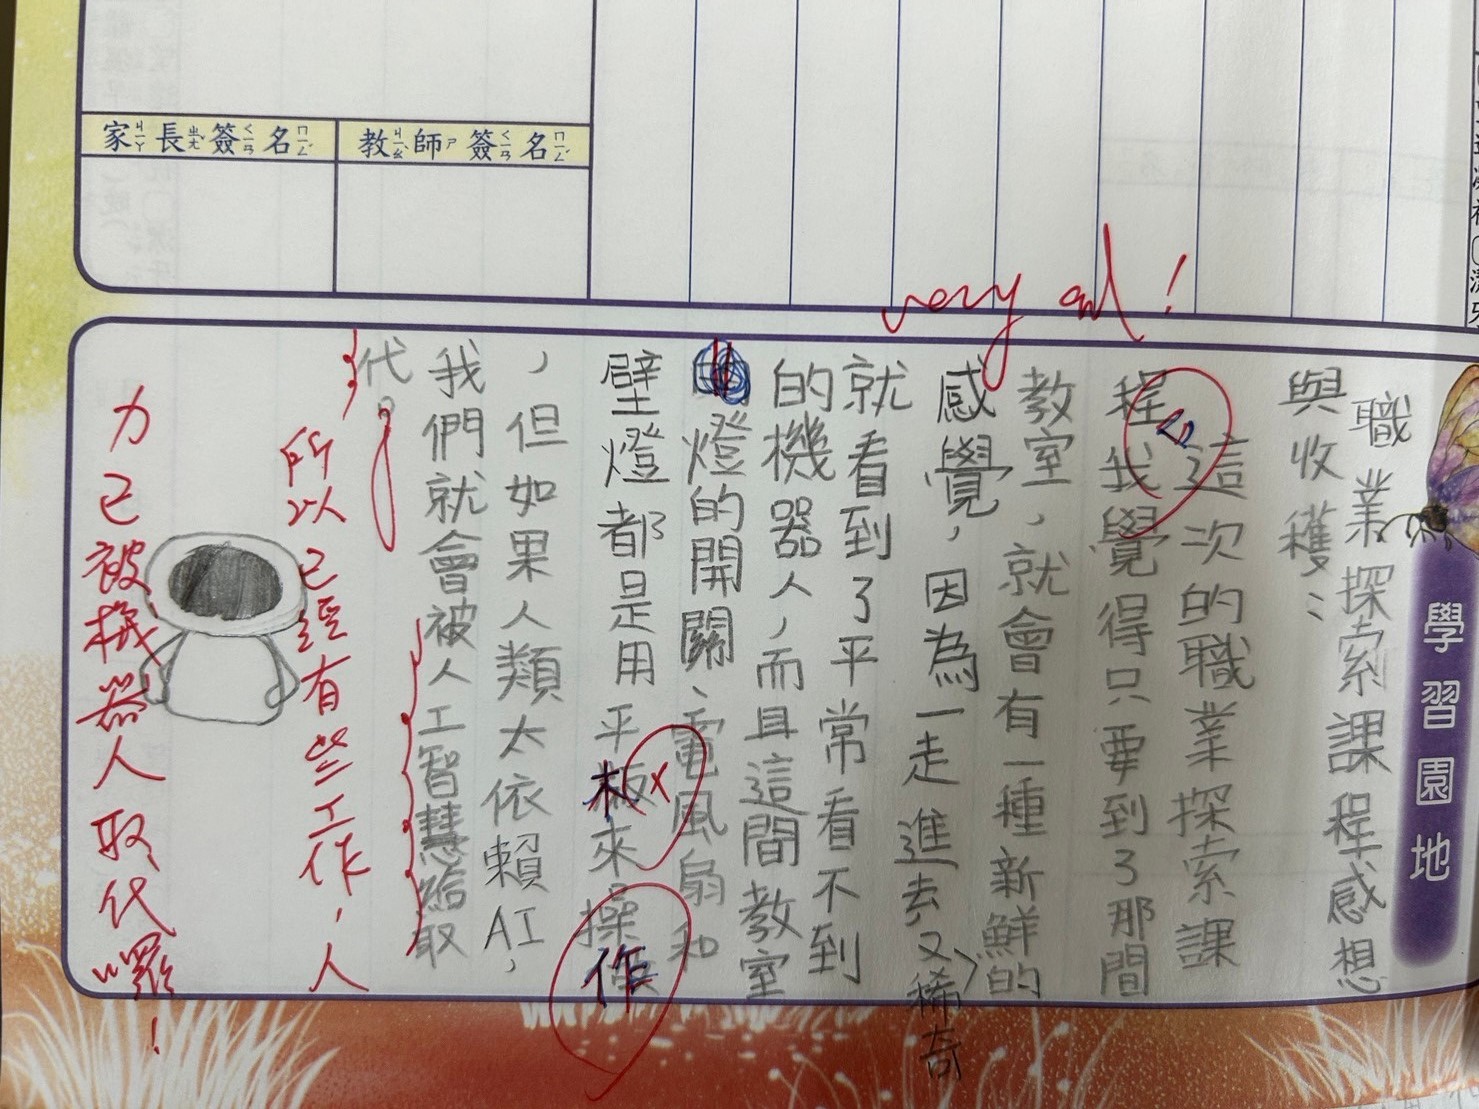 家長簽名
教師簽名
very
學習園地
職業探索課程感想
與收穫：
這次的職業探索課
程我覺得只要到了那間
教室，就會有一種新鮮的
感覺，因為一走進去又稀奇
就看到了平常看不到
的機器人，而且這間教室
燈的開關、電風扇和
壁燈都是用平板來操作
，但如果人類太依賴AI，
我們就會被人工智慧給取
代。
所以已經有些工作，人
力已被機器人取代囉！